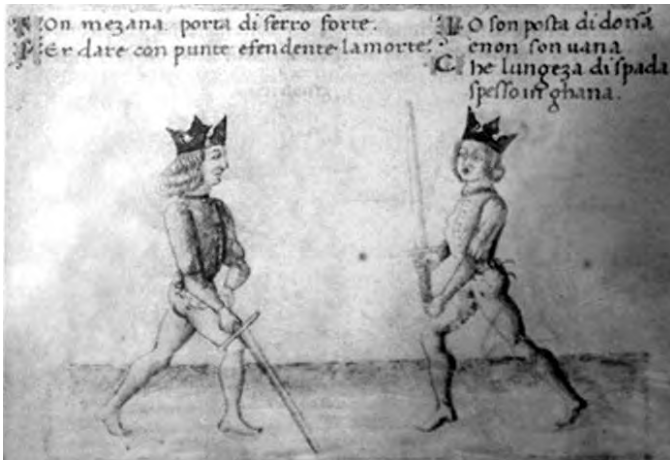 SOn mezana porta di ferro forte.
PEr dare con punte efendente lamorte.
IO son posta di donã
enon son uana
Che lungeza di spada
spesso in ghana.